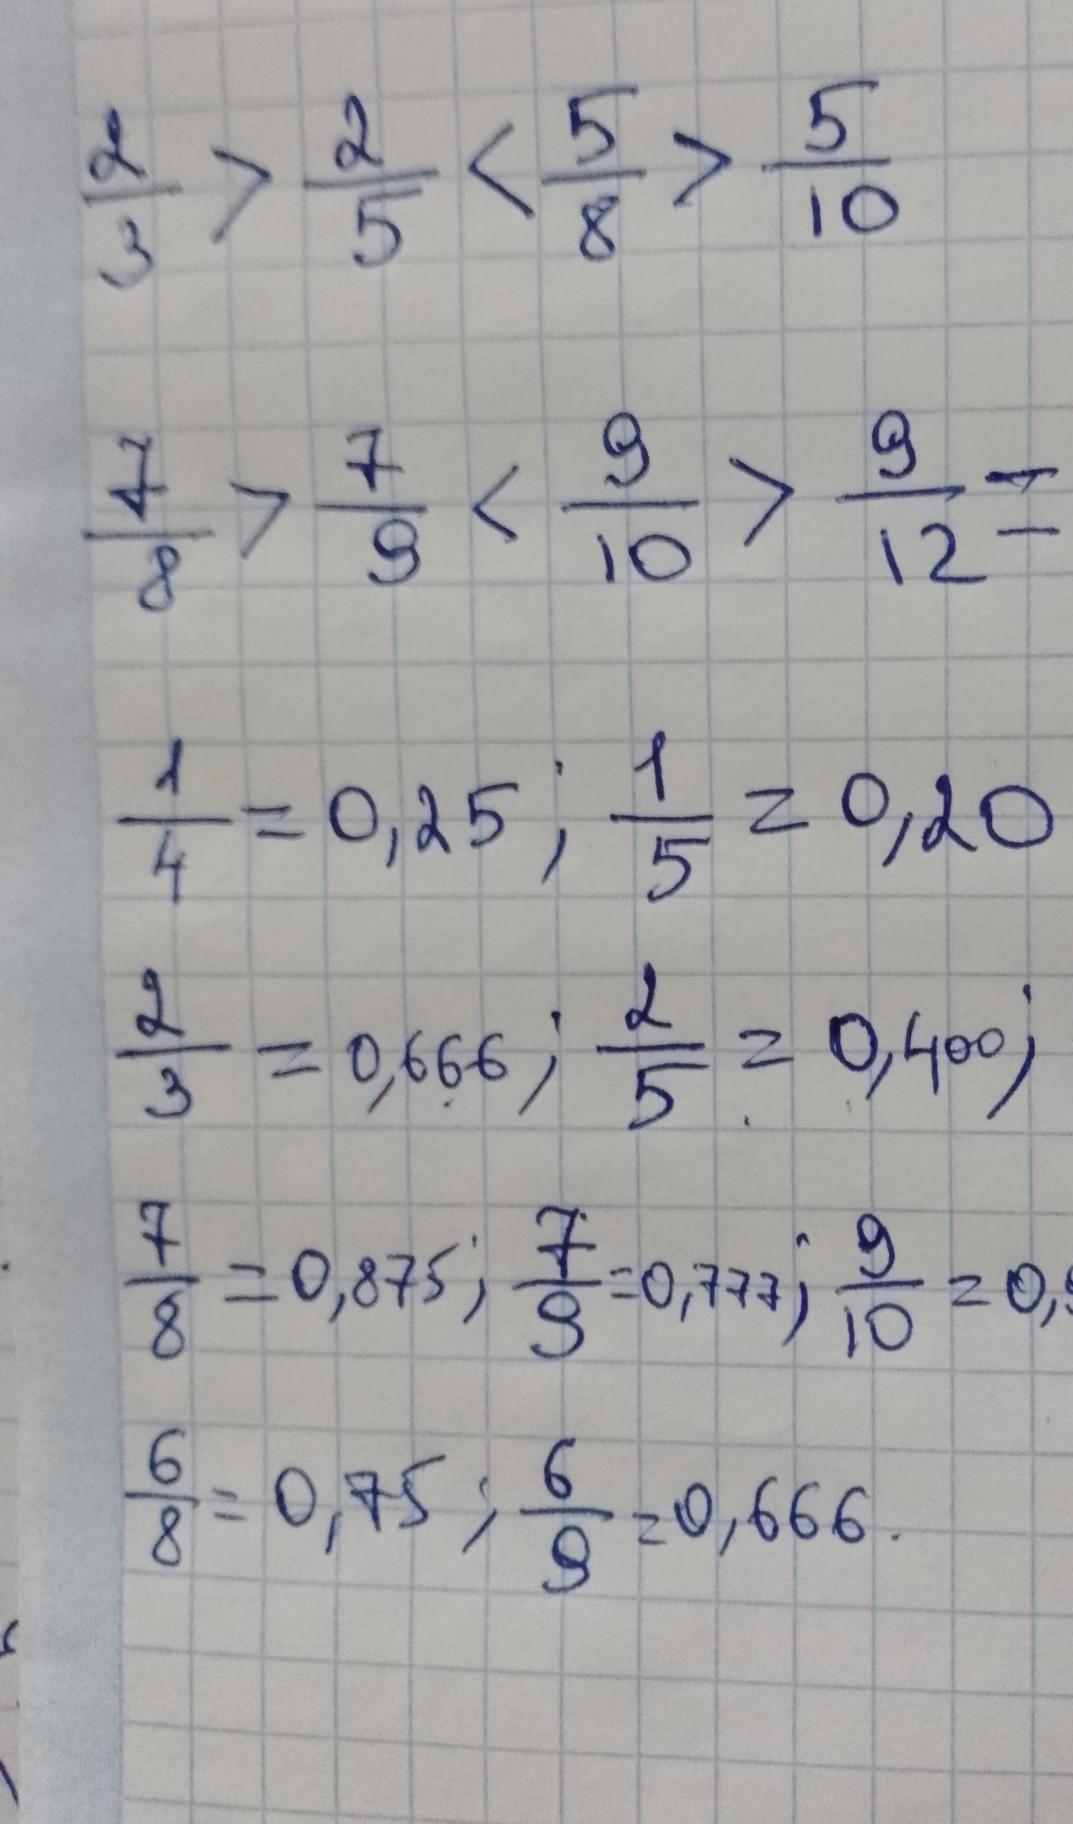 2/3 > 2/5 < 5/8 > 5/10
7/8 > 7/9 < 9/10 > 9/12 =
1/4 = 0,25 ; 1/5 = 0,20
2/3 = 0,666 ; 2/5 = 0,400 ;
7/8 = 0,875 ; 7/9 = 0,777 ; 9/10 = 0,9
6/8 = 0,75 ; 6/9 = 0,666.